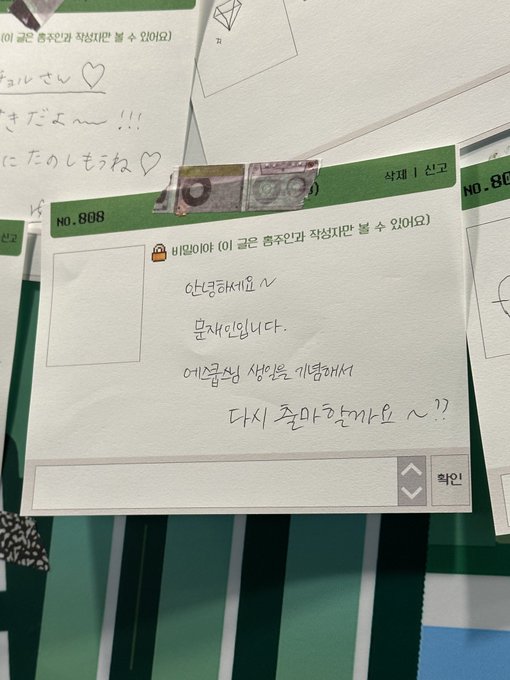 (이 글은 홈주인과 작성자만 볼 수 있어요)
さん♡
きだよ〜 !!!
にたのしもうね♡
신고
NO.808
삭제 | 신고
비밀이야 (이 글은 홈주인과 작성자만 볼 수 있어요)
안녕하세요~
문재인입니다.
에스쿱스님 생일을 기념해서
다시 출마할까요 ~??
확인
NO.80